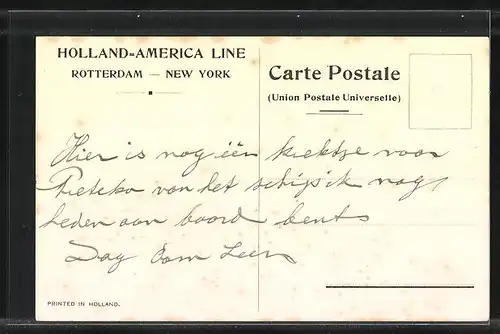 HOLLAND-AMERICA LINE
ROTTERDAM — NEW YORK
Carte Postale
(Union Postale Universelle)
Hier is nog één kiektje voor
van het schip ik nog
heden aan boord bents
Dag Oom Leen
PRINTED IN HOLLAND.